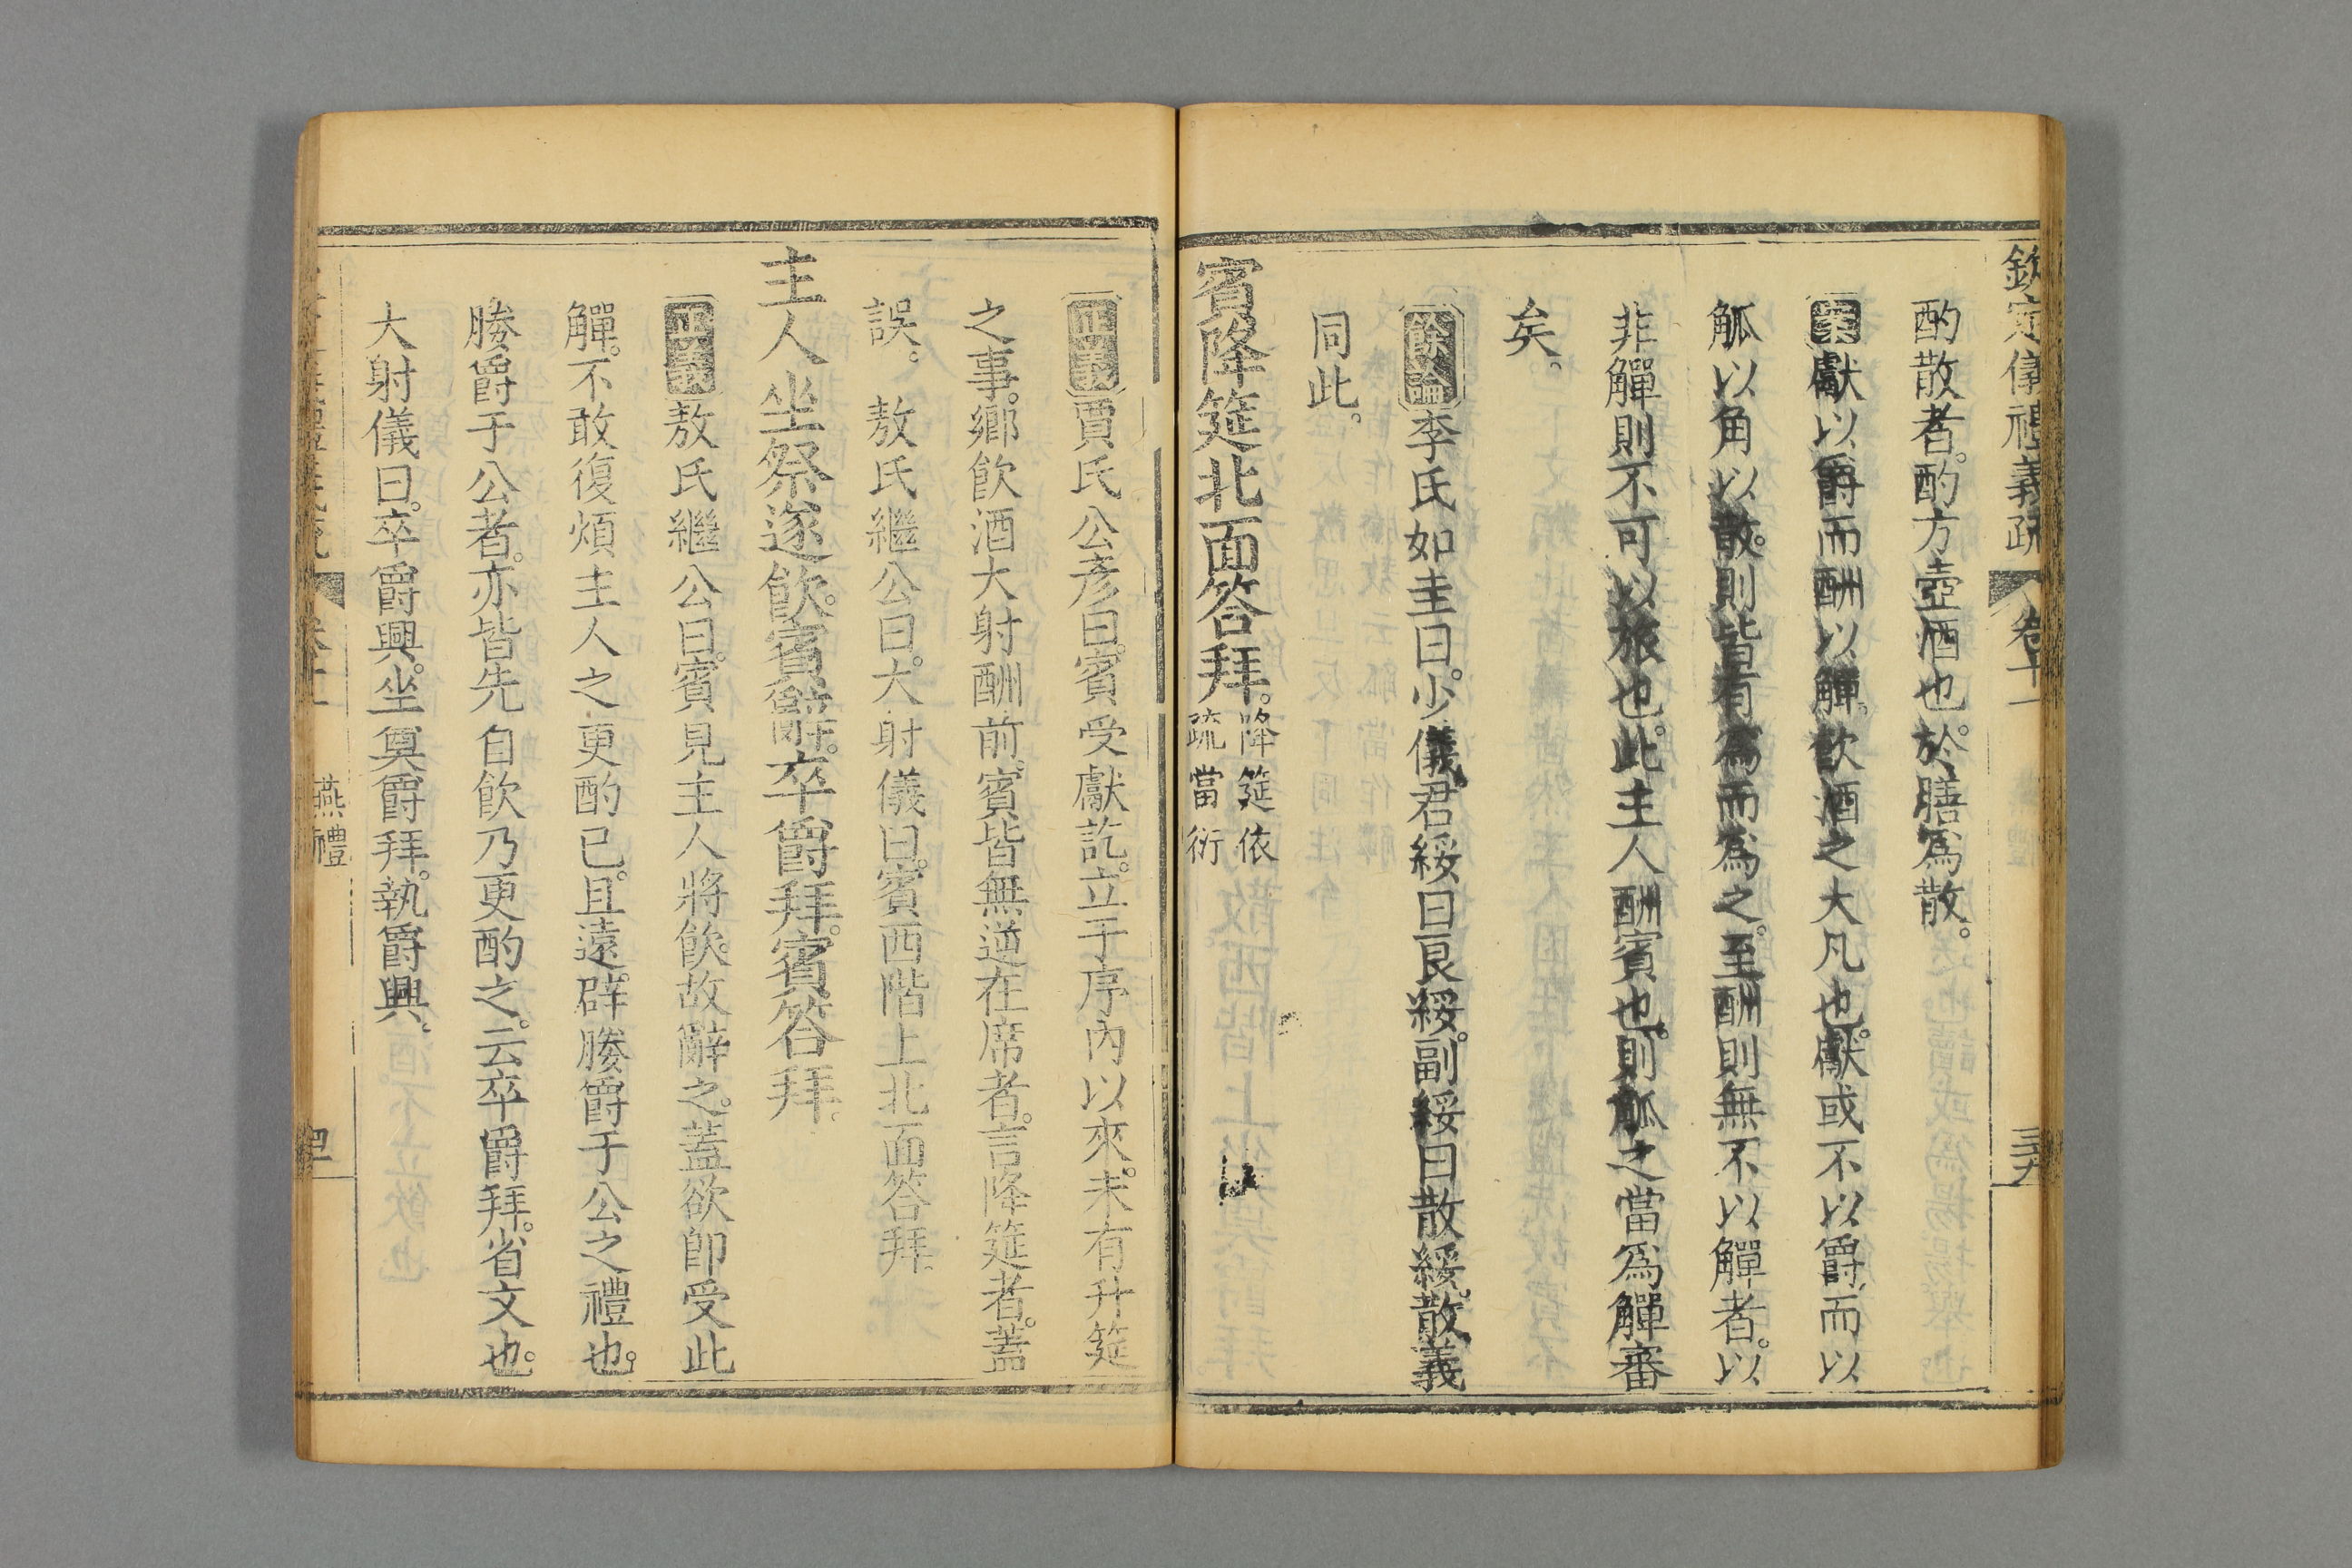 欽定儀禮義疏 卷十一
酌散者。酌方壺酒也。於膳爲散。
案獻以爵而酬以觶。飲酒之大凡也。獻或不以爵。而以
觚以角以散。則皆有爲而爲之。至酬則無不以觶者。以
非觶則不可以旅也。此主人酬賓也。則觚之當爲觶審
矣。
餘論李氏如圭曰。少儀。君綏曰良綏。副綏曰散綏。散義
同此。
賓降筵北面答拜。降筵依
疏當衍
正義賈氏公彥曰。賓受獻訖。立于序內以來。未有升筵
之事。鄉飲酒大射酬前。賓皆無逆在席者。言降筵者。蓋
誤。 敖氏繼公曰。大射儀曰。賓西階上北面答拜。
主人坐祭遂飲。賓辭。卒爵拜。賓答拜。
正義敖氏繼公曰。賓見主人將飲。故辭之。蓋欲卽受此
觶。不敢復煩主人之更酌已。且遠辟媵爵于公之禮也。
媵爵于公者。亦皆先自飲乃更酌之。云卒爵拜。省文也。
大射儀曰。卒爵興。坐奠爵拜。執爵興。
燕禮